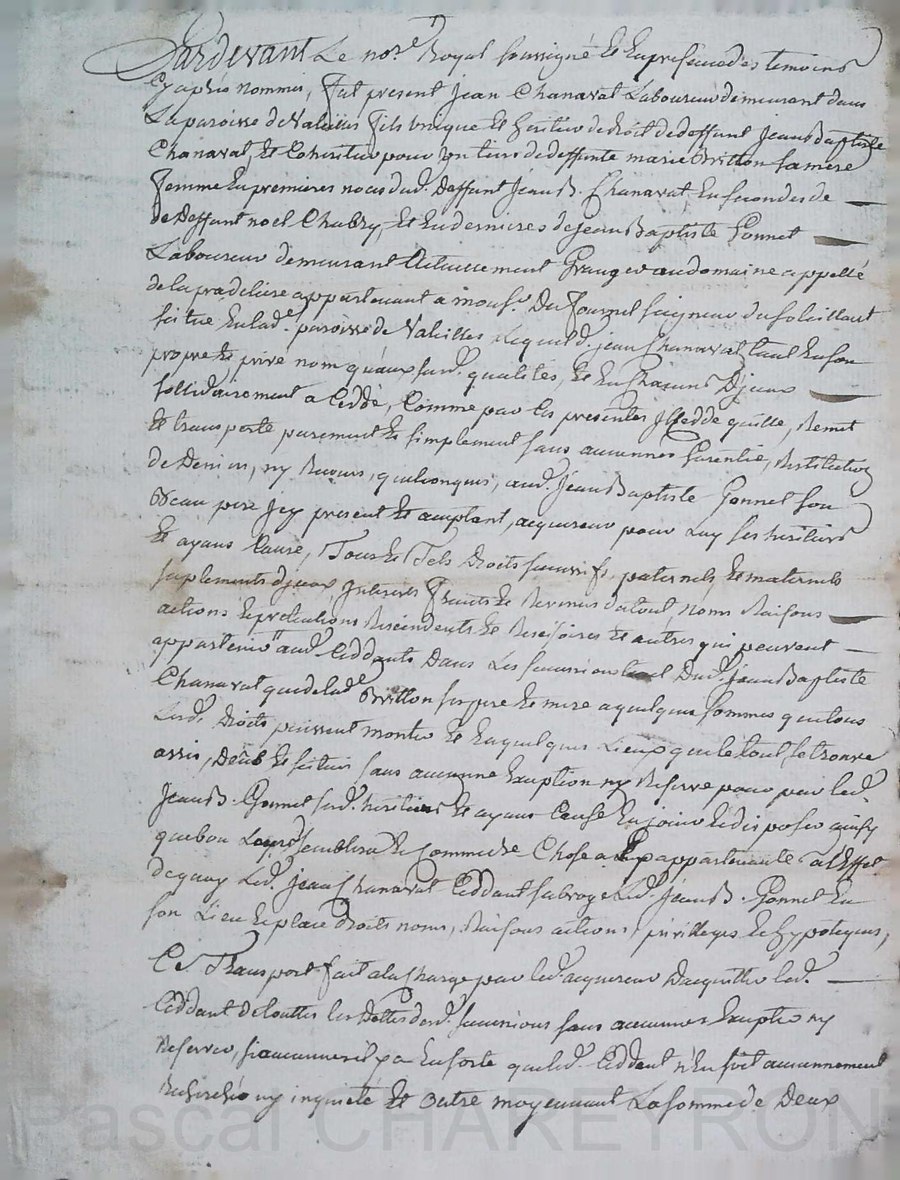 Pardevant Le nore Royal soussigné Et En presence des temoins
Cy aprés nommés, fut present jean Chanavat Laboureur demeurant dans
La paroisse de Valeilles fils Unique Et heritier de droit de deffunt Jean Baptiste
Chanavat, Et Coheritier pour son tiers de deffunte marie Britton sa mere
femme En premieres noces dud. Deffunt Jean B. Chanavat En secondes de
de Deffunt noel Chabry, Et En dernieres de Jean Baptiste Gonnet
Laboureur demeurant Actuellement Granger au domaine appellé
de la pradeliere appartenant a monsr. Du Fournel seigneur du soleillant
scitué En lad. paroisse de Valeilles Lequel d. jean Chanavat tant En son
propre Et privé nom qu'aux susd. qualités, Et En Chacune D'jceux
sollidairement a Ceddé, Comme par les presentes Jl Cedde quitte, Remet
Et transporte purement Et simplement sans aucunnes Garentie, Restitution
de Deniers, ny Recours, quelconques, aud. Jean Baptiste Gonnet son
Beau pere Jcy present Et acceptant, acquereur pour Luy ses heritiers
Et ayans Cause, Tous Et Tels Droits successifs, paternels, Et maternels
suplements d'jceux, Jnterets Fruits Et Revenus da tout noms Raisons
actions Et pretentions Rescindents Et Rescisoires Et autres qui peuvent
appartenir aud. Ceddants Dans Les successions Dud. Jean Baptiste
Chanavat que de lade Britton ses pere Et mere a quelques sommes que tous
Lesd. Droits puissent monter Et En quelques Lieux que le tout se trouve
assis, Dêub Et scitués sans aucunne Exception ny Reserve pour par led.
Jean B. Gonnet sesd. heritiers Et ayans Cause En jouir Et disposer ainsy
que bon Leurs semblera Et Comme de Chose a appartenante a L'Effet
de quoy Led. Jean Chanavat Ceddant subroge Led. Jean B. Gonnet En
son Lieu Et place droits noms, Raisons actions, privilleges Et hypoteques,
Ce Transport fait a la Charge par led. acquereur D'acquitter led.
Ceddant de toutes les Dettes desd. successions sans aucunnes Exception ny
Reserve, si aucunnes Et En sorte que led. Ceddant n'En soit aucunnement
Recherché ny inquieté Et Outre moyennant La somme de Deux
Pascal CHAREYRON